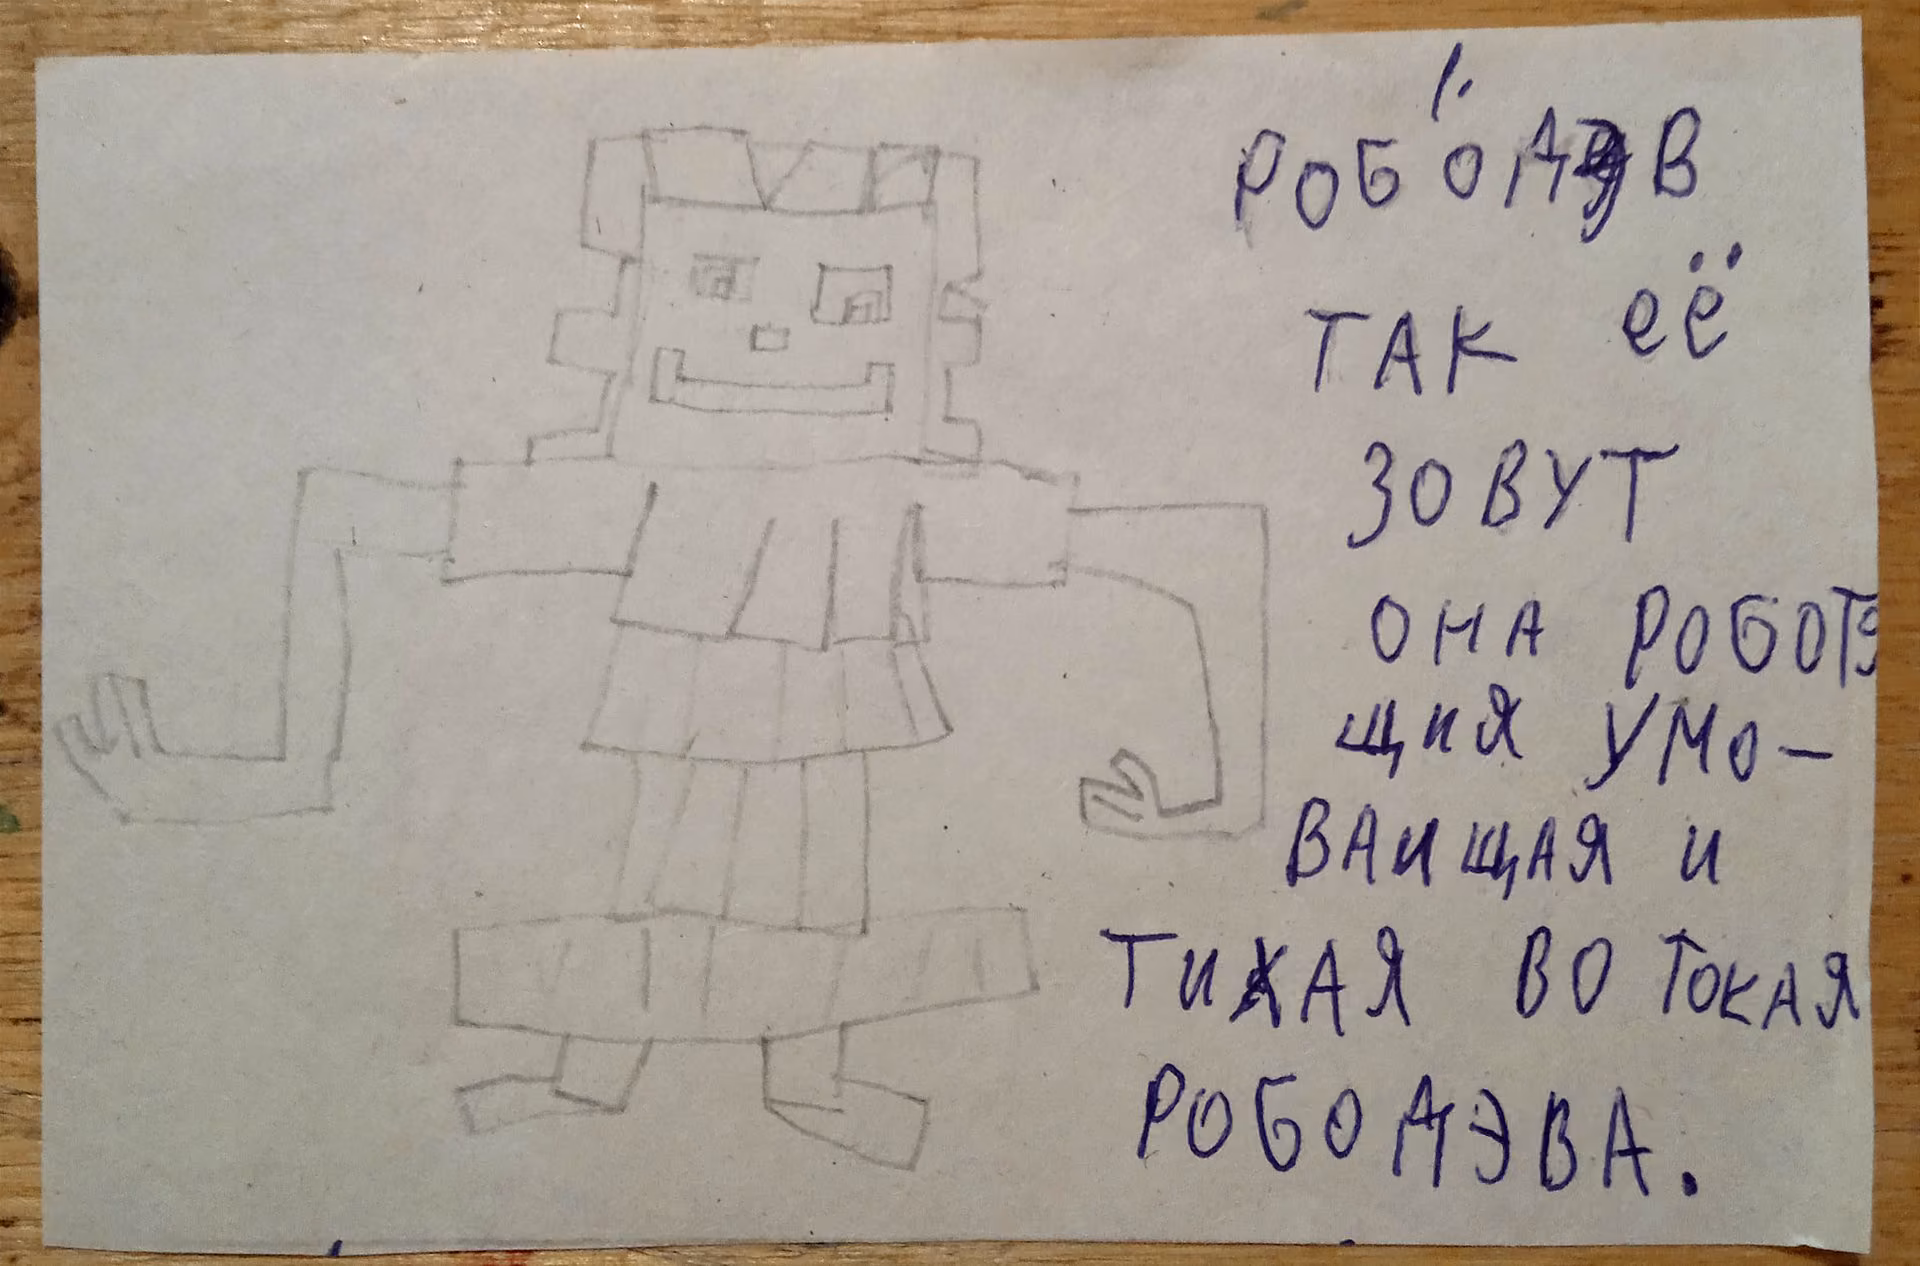 РОБОДЭВ
ТАК её
ЗОВУТ
ОНА РОБОТЭ
ЩИЯ УМО-
ВАИЩАЯ И
ТИХАЯ ВО ТОКАЯ
РОБОДЭВА.